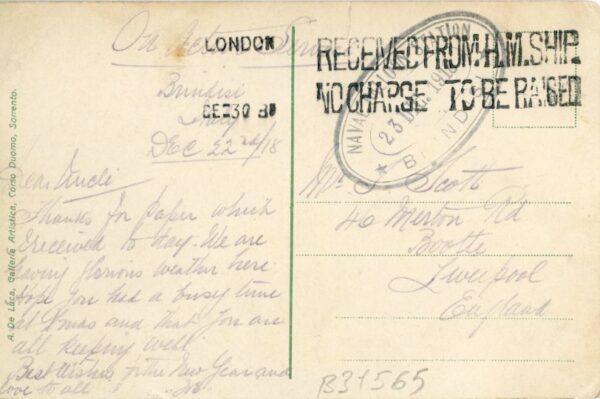 On Active Service
LONDON
DEC 30
Brindisi
Italy
Dec 22nd/18
Dear Uncle
Thanks for paper which
I received to day. We are
having glorious weather here.
Hope you had a busy time
at Xmas and that you are
all keeping well.
Best wishes for the New Year and
love to all
RECEIVED FROM H.M. SHIP.
NO CHARGE TO BE RAISED
NAVAL STATION
23 DEC 191
BRINDISI
Mr Scott
46 Merton Rd
Bootle
Liverpool
England
B31565
A. De Luca, Galleria Artistica, Corso Duomo, Sorrento.